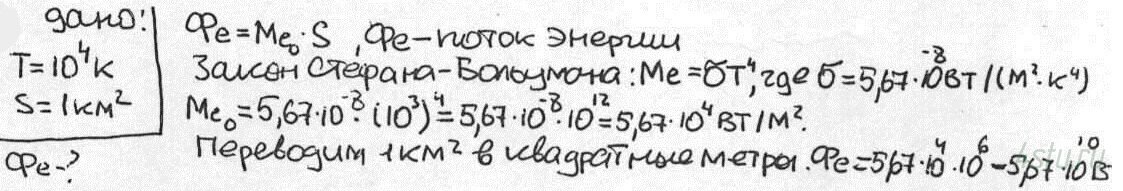 дано:
T = 10⁴ К
S = 1 км²
Фе - ?
Фе = Me₀ · S , Фе – поток энергии
Закон Стефана-Больцмана: Me = σT⁴, где σ = 5,67 · 10⁻⁸ Вт/(м² · К⁴)
Me₀ = 5,67 · 10⁻⁸ · (10³)⁴ = 5,67 · 10⁻⁸ · 10¹² = 5,67 · 10⁴ Вт/м².
Переводим 1 км² в квадратные метры. Фе = 5,67 · 10⁴ · 10⁶ = 5,67 · 10¹⁰ В